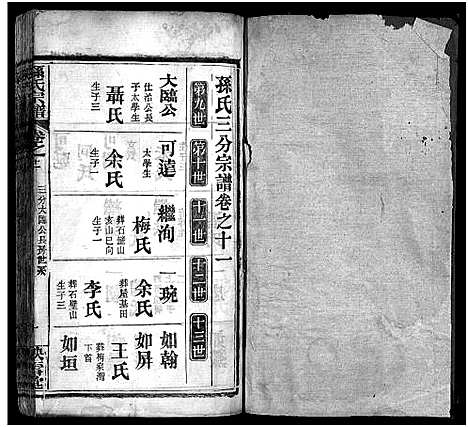 孫氏三分宗譜卷之十一
第九世
第十世
十一世
十二世
十三世
大臨公
仕治公長
子太學生
聶氏
生子三
可遠
大學生
余氏
生子一
繼洵
梅氏
葬石壁山
亥山巳向
生子一
一琬
余氏
葬屋基田
李氏
葬石壁山
生子三
如翰
如屏
王氏
葬梅家灣
下首
如垣
孫氏宗譜
卷之十一
三分大臨公長孫世系